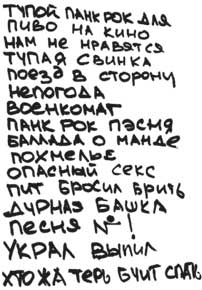 ТУПОЙ ПАНК РОК ДЛЯ
ПИВО НА КИНО
НАМ НЕ НРАВЯТСЯ
ТУПАЯ СВИНКА
ПОЕЗД В СТОРОНУ
НЕПОГОДА
ВОЕНКОМАТ
ПАНК РОК ПЭСНЯ
БАЛЛАДА О МАНДЕ
ПОХМЕЛЬЕ
ОПАСНЫЙ СЕКС
ПИТ БРОСИЛ БРИТЬ
ДУРНАЯ БАШКА
ПЕСНЯ №1
УКРАЛ ВЫПИЛ
ХТО ЖА ТЕРЬ БУИТ СПАТЬ